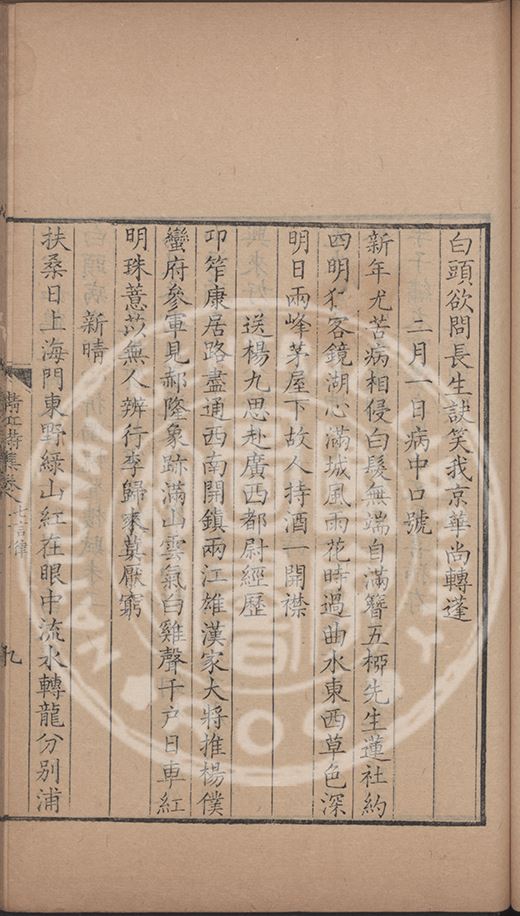 白頭欲問長生訣笑我京華尚轉蓬
二月一日病中口號
新年尤苦病相侵白髮無端自滿簪五柳先生蓮社約
四明狂客鏡湖心滿城風雨花時過曲水東西草色深
明日兩峰茅屋下故人持酒一開襟
送楊九思赴廣西都尉經歷
邛筰康居路盡通西南開鎮兩江雄漢家大將推楊僕
蠻府參軍見郝隆象跡滿山雲氣白雞聲千戶日車紅
明珠薏苡無人辨行李歸來莫厭窮
新晴
扶桑日上海門東野綠山紅在眼中流水轉龍分別浦
詩集卷八 七言律
九